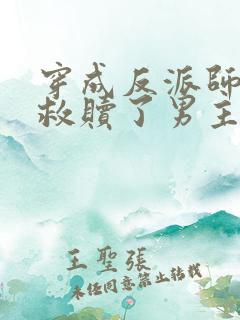 穿成反派師
救贖了男主
王聖張
未经同意禁止转载